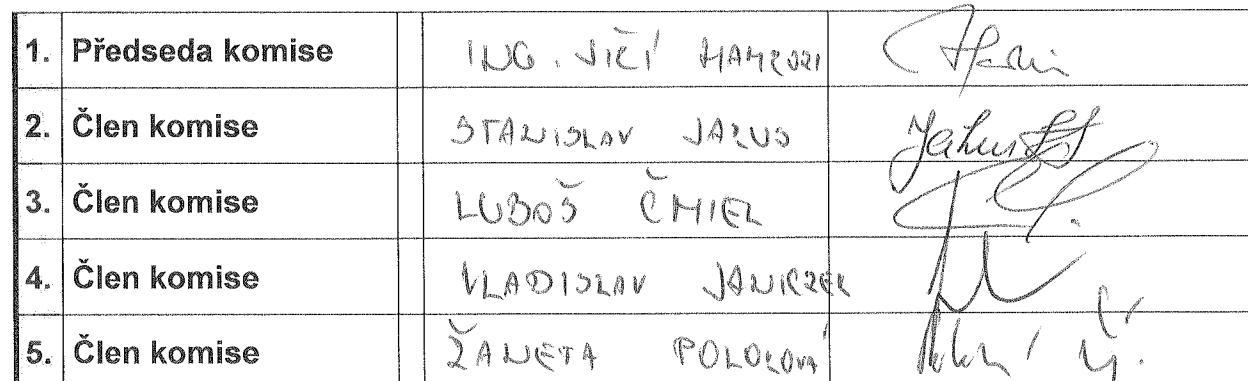 1. Předseda komise ING. JIŘÍ HAMROZI
2. Člen komise STANISLAV JAKUS
3. Člen komise LUBOŠ ČMIEL
4. Člen komise VLADISLAV JANICZEK
5. Člen komise ŽANETA POLOKOVÁ